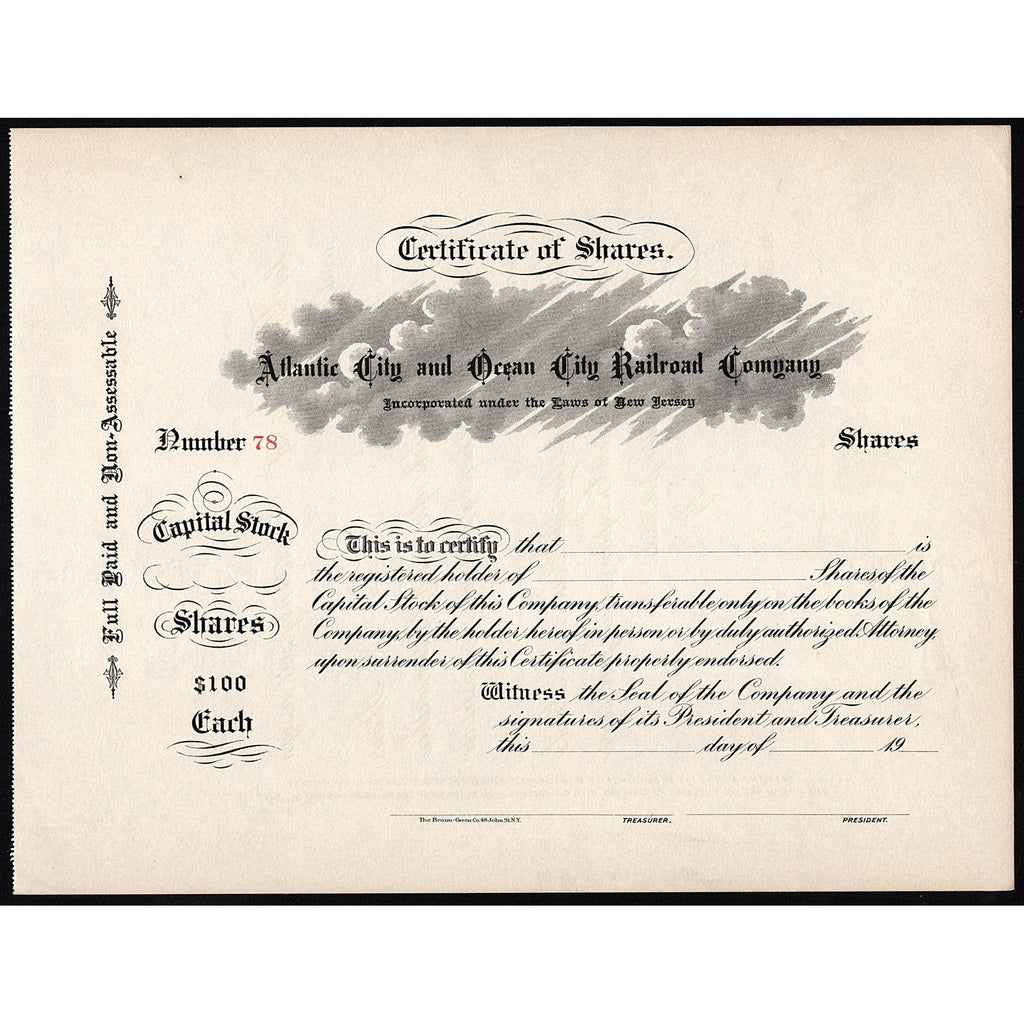 Certificate of Shares.
Atlantic City and Ocean City Railroad Company
Incorporated under the Laws of New Jersey
Number 78
Shares
Full Paid and Non-Assessable
Capital Stock
Shares
$100
Each
This is to certify that is
the registered holder of Shares of the
Capital Stock of this Company, transferable only on the books of the
Company, by the holder hereof in person or by duly authorized Attorney,
upon surrender of this Certificate properly endorsed.
Witness the Seal of the Company and the
signatures of its President and Treasurer,
this day of 19
The Broun-Green Co. 48 John St. N.Y.
TREASURER.
PRESIDENT.